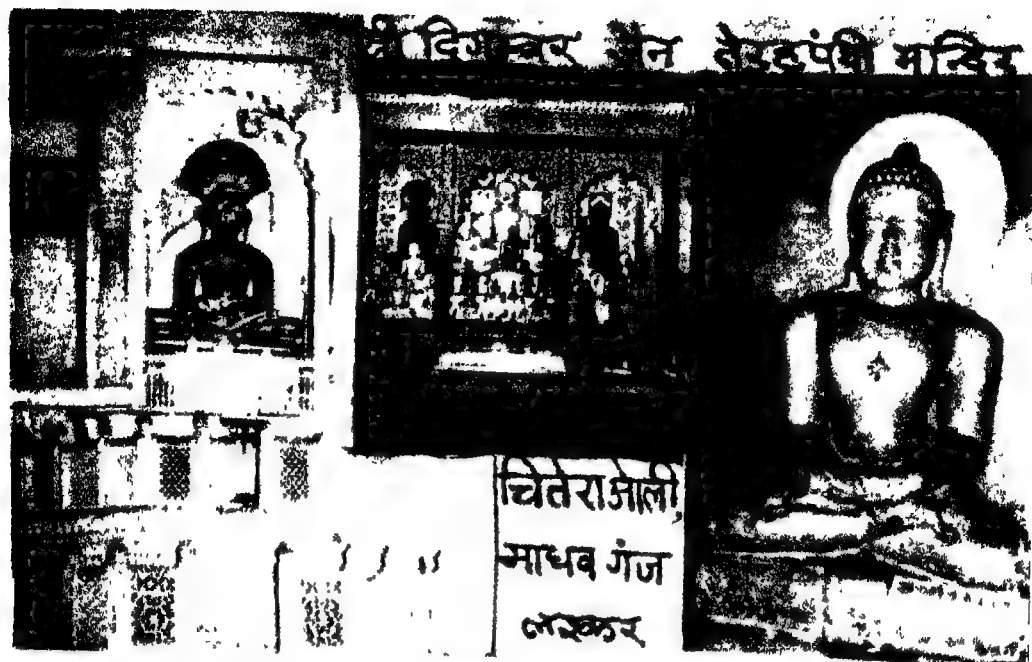 श्री दिगम्बर जैन तेरहपंथी मन्दिर
चितेराओली,
माधव गंज
लश्कर